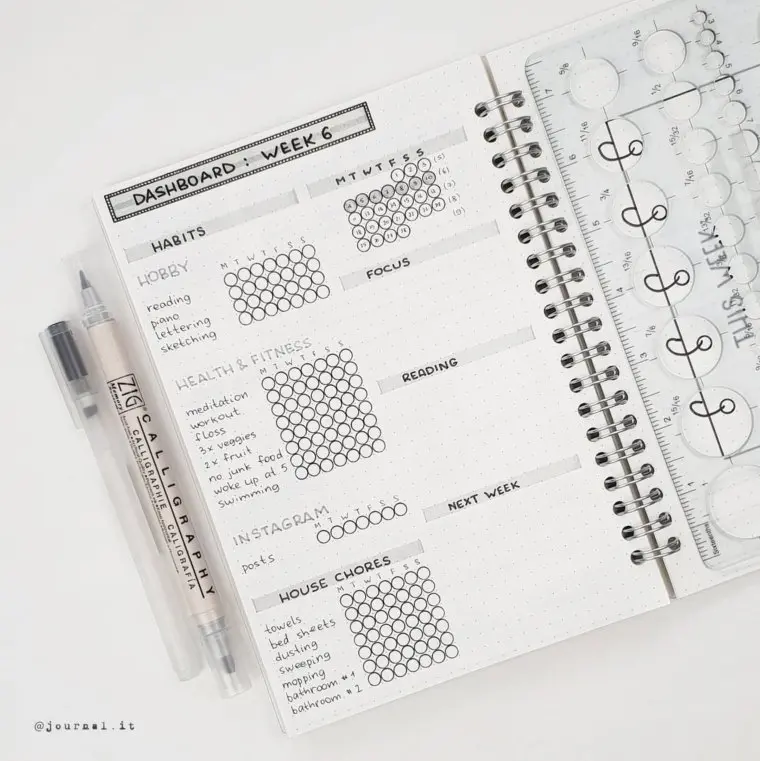 DASHBOARD : WEEK 6
HABITS
HOBBY
M T W T F S S
reading
piano
lettering
sketching
HEALTH & FITNESS
M T W T F S S
meditation
workout
floss
3x veggies
2x fruit
no junk food
woke up at 5
swimming
INSTAGRAM
M T W T F S S
posts
HOUSE CHORES
M T W T F S S
towels
bed sheets
dusting
sweeping
mopping
bathroom #1
bathroom #2
M T W T F S S
1 2 3 (5)
4 5 6 7 8 9 10 (6)
(7)
(8)
(9)
FOCUS
READING
NEXT WEEK
THIS WEEK
ZIG
Memory
CALLIGRAPHY
CALLIGRAPHIE
CALIGRAFÍA
5/8
9/16
1/2
11/16
3/4
13/16
7/8
15/16
15/32
7/16
7
6
5
4
3
2
1
@journal.it